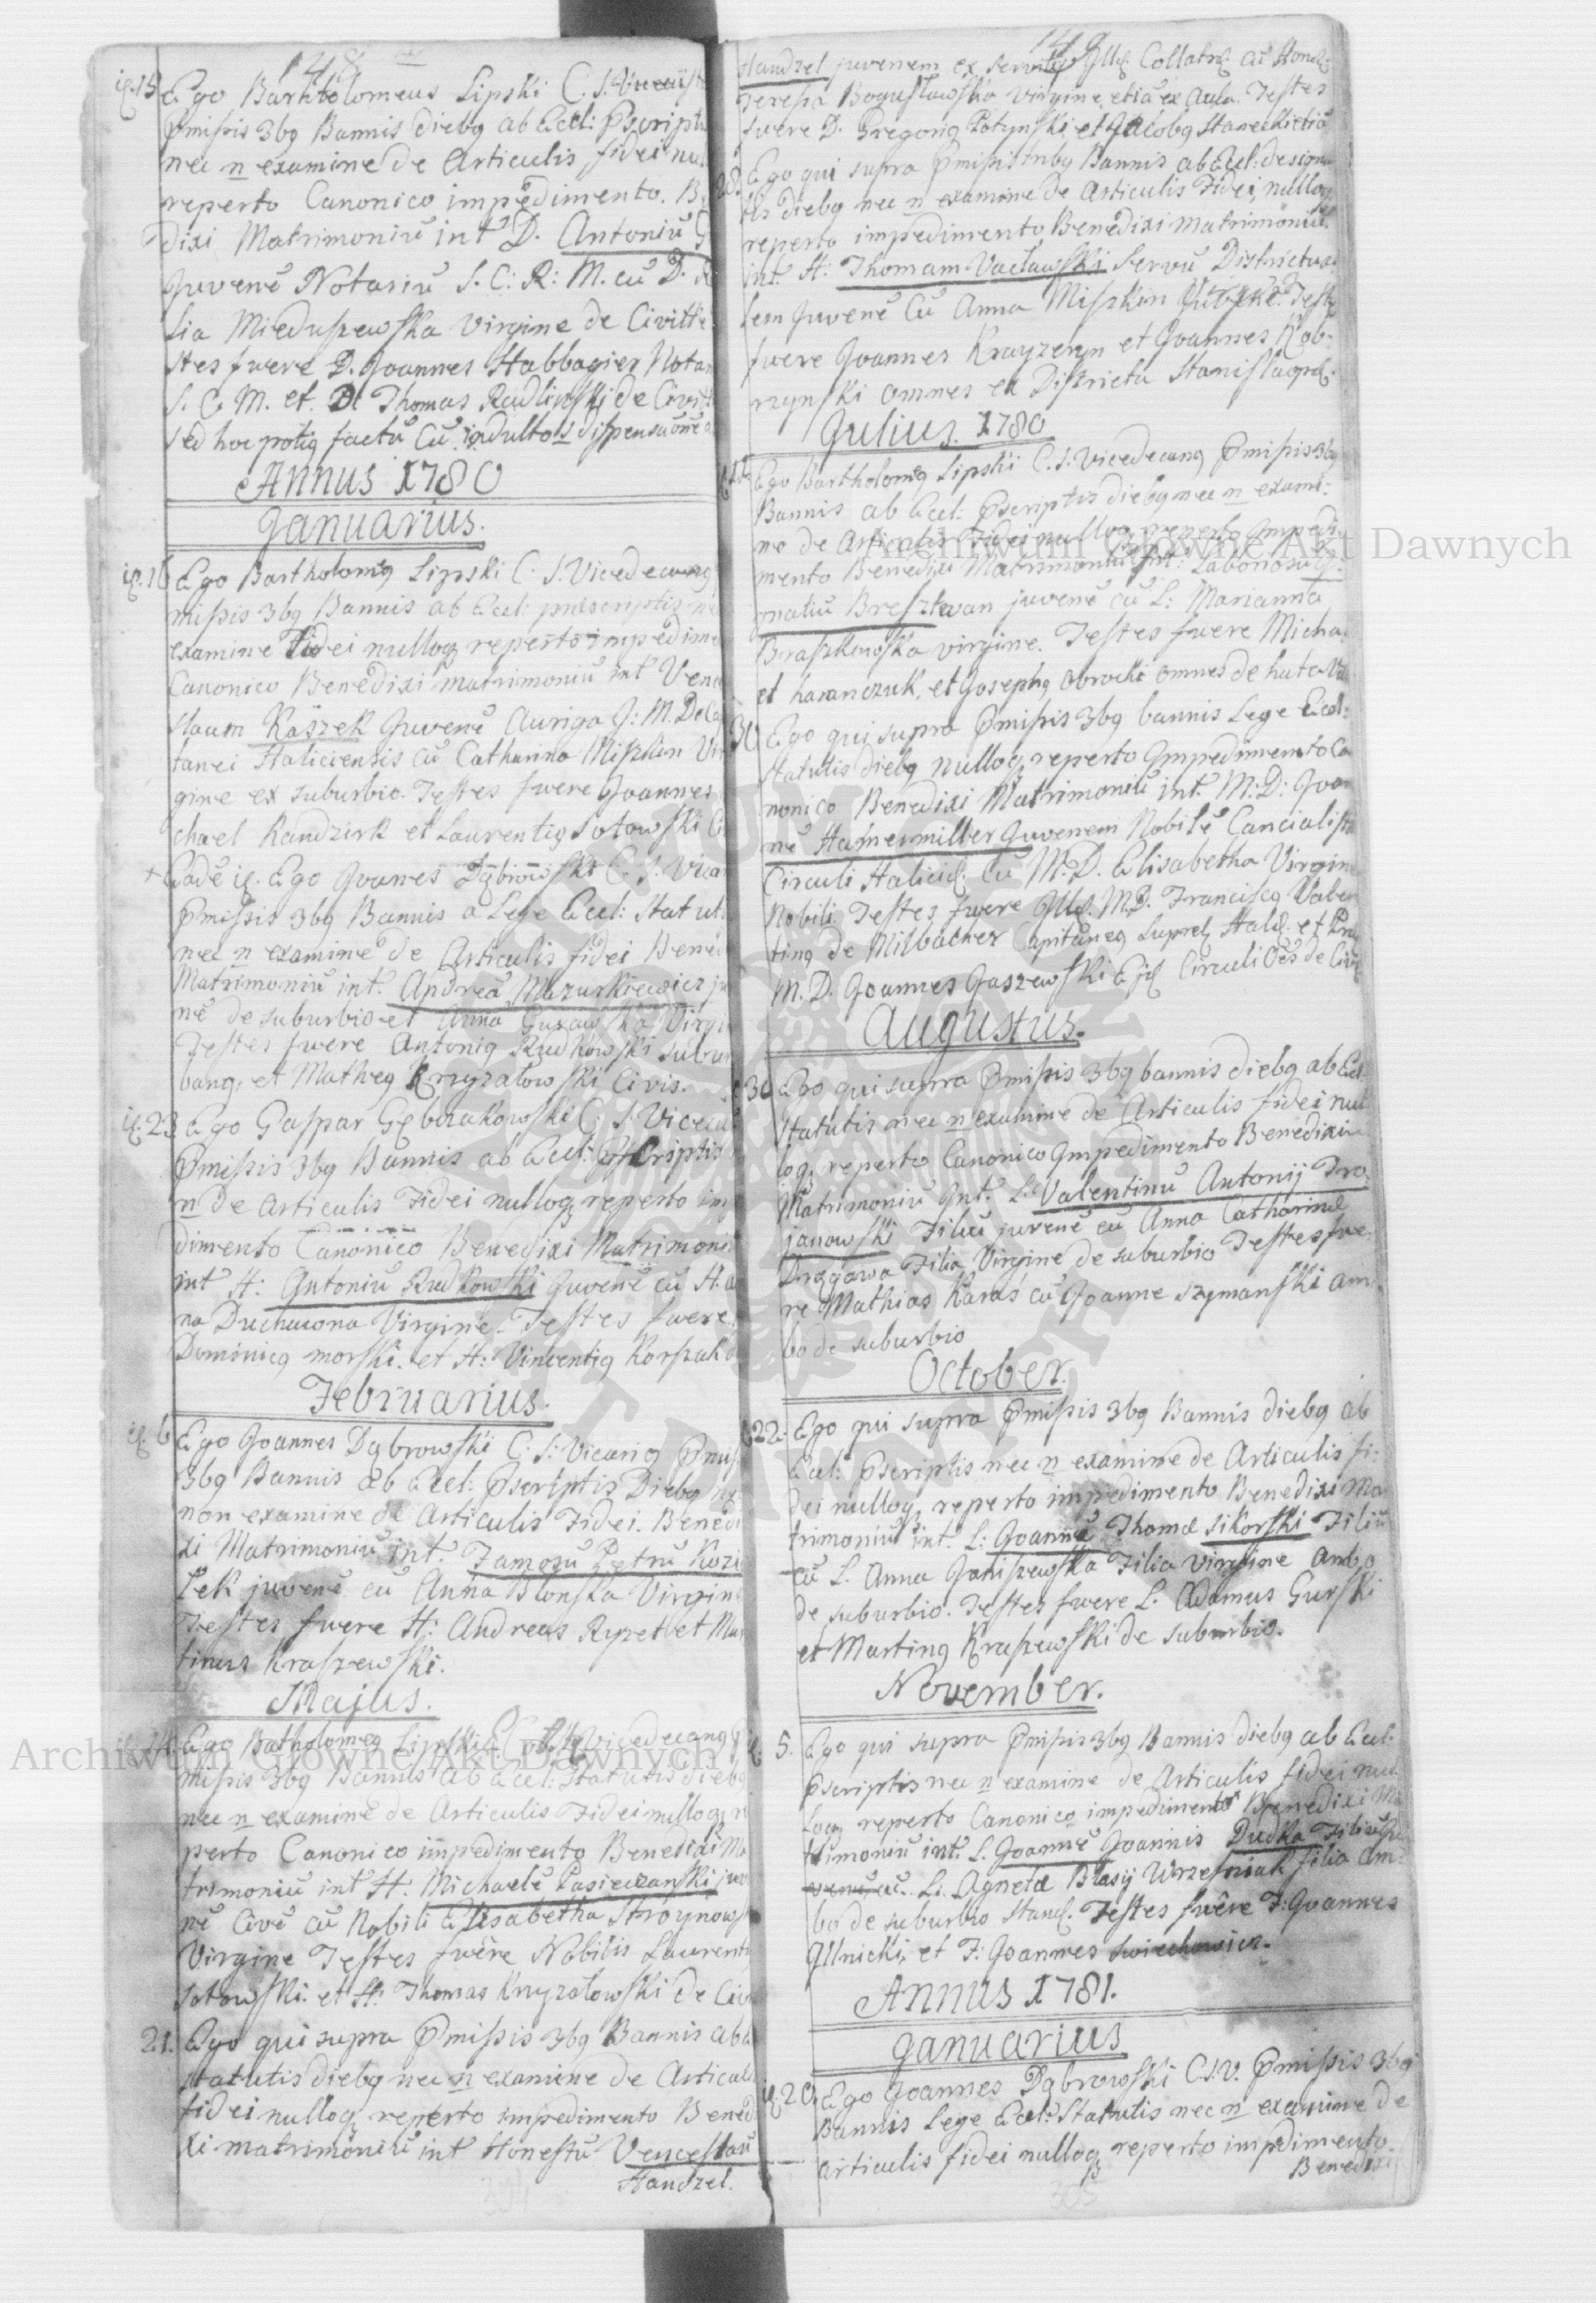 148
ię. 15 Ego Bartholomeus Lipski C. S.
Pmissis 3bq Bannis diebq ab Eccl: Pscript
nec n examine de Articulis fidei nul
reperto Canonico impedimento. B
dixi Matrimoniū int D. Antoniū
Juvenē Notariū S. C: R: M. cū D.
lia Mieduszewska Virgine de Civitte
stes fuere D. Joannes Habbagier Notar
S. C. M. et D Thomas Radlinski de Civit
sed hoc potiq factū cū indulto
Annus 1780
Januarius.
ię. 16 Ego Bartholomēq Lipski C. S. Vicedecanq
missis 3bq Bannis ab Eccl: praescriptis
examine Fidei nulloq reperto impedime
Canonico Benedixi matrimoniū int Vence
slaum Kaszek Juvenē Auriga J: M. D.
tanei Haliciensis cū Catharina Miszkin Vir
gine ex suburbio. Testes fuere Joannes
chael Kandzirk et Laurentiq Sotowski Ci
+ Eadē ię. Ego Joannes Dąbrowski C. S. Vica
Pmissis 3bq Bannis a Lege Eccl: Statut.
nec n examine de Articulis fidei Bened
Matrimoniū int. Andreā Mazurkiewicz ju
nē de suburbio et Anna Guzawska Virgi
Testes fuere Antoniq Rudkowski subur
banq, et Matheq Krzyzalowski Civis.
ię. 23 Ego Gaspar Gębrzakowski C: S. Vicecu
Pmissis 3bq Bannis ab Eccl:
n de Articulis Fidei nulloq reperto imp
dimento Canonico Benedixi Matrimoniū
int H: Antoniū Rudkowski Juvenē cū H. an
na Duchawona Virgine. Testes fuere
Dominicq morski. et H: Vincentiq Korszak
Februarius.
ię. 6 Ego Joannes Dąbrowski C: S: Vicariq Pmis
3bq Bannis ab Eccl: Pscriptis Diebq ne
non examine de Articulis Fidei. Benedi
xi Matrimoniū int. Famosū Petrū Kozi
łek juvenē cū Anna Blonska Virgine
Testes fuere H: Andreas Ryzet et Mar
tinus Kraszewski.
Majus.
Ego Batholomeq Lipski Vicedecanq
missis 3bq Bannis ab Eccl: Statutis diebq
nec n examine de Articulis Fidei nulloq re
perto Canonico impedimento Benedixi Ma
trimoniū int H. Michaelē Pasieczanski juve
nē Civē cū Nobili Elisabetha Stroynowsk
Virgine Testes fuēre Nobilis Laurenti
Sotowski. et H: Thomas Krzyzalowski de Civi
21. Ego qui supra Pmissis 3bq Bannis ab
statutis diebq nec n examine de Articul
fidei nulloq reperto impedimento Bened
xi matrimoniū int Honestū Venceslaū
Handzel.
149
Handzel juvenem ex servitq Illę Collatrę cū Honę
Teresia Bogusławska Virgine, etiā ex Aula. Testes
fuere D. Gregoriq Potynski et Jacobq Staneckietiā
28. Ego qui supra Pmissis tribq Bannis ab Eccl: design
tis diebq nec n examine de Articulis Fidei, nulloq
reperto impedimento Benedixi matrimoniū
int. H: Thomam Vacławski servū Districtua
lem Juvenē cū Anna Miszkin Testes
fuere Joannes Krayzeryn et Joannes Kob-
rzynski omnes ex Districtu Stanislaopoł.
Julius. 1780
Ego Bartholomēq Lipski C. S. Vicedecanq Pmissis 3bq
Bannis ab Eccl: Pscriptis diebq nec n exami:
ne de Articulis Fidei nulloq reperto Impedi
mento Benedixi Matrimoniū int: Laboriosū Ig-
natiū Breszewan juvenē cū L: Marianna
Braszkowska virgine. Testes fuere Micha
el haranczuk, et Josephq Obrocki omnes de huta
30 Ego qui supra Pmissis 3bq bannis Lege Eccl:
Statutis diebq nulloq reperto Impedimento Ca
nonico Benedixi Matrimoniū int. M: D: Joan
nē Hafnermiller Juvenem Nobilē Cancialistę
Circuli Halicię: cū M: D. Elisabetha Virgine
Nobili. Testes fuere Illę. M. D. Franciscq Valen
tinq de Milbacher Capitaneq Supreę Halę. et
M. D. Joannes Jaszewski Eję Circuli Oēs de Civ
Augustus.
30 Ego qui supra Pmissis 3bq bannis diebq ab Eccl
statutis nec n examine de Articulis fidei nul
loq reperto Canonico Impedimento Benedixi
Matrimoniū Int. L: Valentinū Antonij Tro-
janowski Filiū juvenē cū Anna Catharinae
Drągowa Filia Virgine de suburbio Testes fue-
re Mathias Karas cū Joanne Szymanski am-
bo de suburbio
October.
22. Ego qui supra Pmissis 3bq Bannis diebq ab
Eccl: Pscriptis nec n examine de Articulis fi:
dei nulloq reperto impedimento Benedixi Ma
trimoniū int. L: Joannē Thomae Sikorski Filiū
cū L. Anna Janiszewska Filia virgine Ambo
de suburbio. Testes fuere L. Adamus Gurski
et Martinq Kraszewski de suburbio.
November.
5. Ego qui supra Pmissis 3bq Bannis diebq ab Eccl:
Pscriptis nec n examine de Articulis fidei nul
loq reperto Canonico impedimento Benedixi Ma
trimoniū int. L. Joannē Joannis Dudka Filiū
cū L. Agneta Blasij Wrzesniak filia am-
bo de suburbio Stanę. Testes fuêre F: Joannes
Illnicki, et F: Joannes Swiechowicz.
Annus 1781.
Januarius
ię. 20. Ego Joannes Dąbrowski C.S.V. Pmissis 3bq
Bannis Lege Eccl: Statutis nec n examine de
articulis fidei nulloq reperto impedimento
Benedixi
Archiwum Główne Akt Dawnych
Archiwum Główne Akt Dawnych